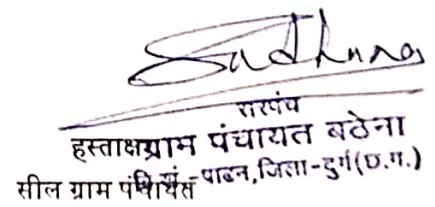 Sadhna
सरपंच
हस्ताक्षर ग्राम पंचायत बठेना
सील ग्राम पंचायत वि.खं.-पाटन, जिला-दुर्ग (छ.ग.)